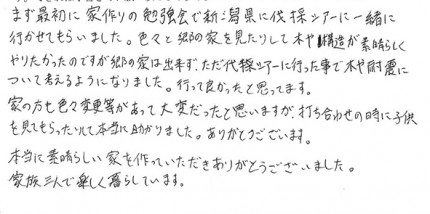 まず最初に家作りの勉強会で新潟県に伐採ツアーに一緒に
行かせてもらいました。色々と郷の家を見たりして木や構造が素晴らしく
やりたかったのですが郷の家は出来ず、ただ伐採ツアーに行った事で木や耐震に
ついて考えるようになりました。行って良かったと思ってます。
家の方も色々変更等があって大変だったと思いますが、打ち合わせの時に子供
を見てもらったりして本当に助かりました。ありがとうございます。
本当に素晴らしい家を作っていただきありがとうございました。
家族三人で楽しく暮らしています。